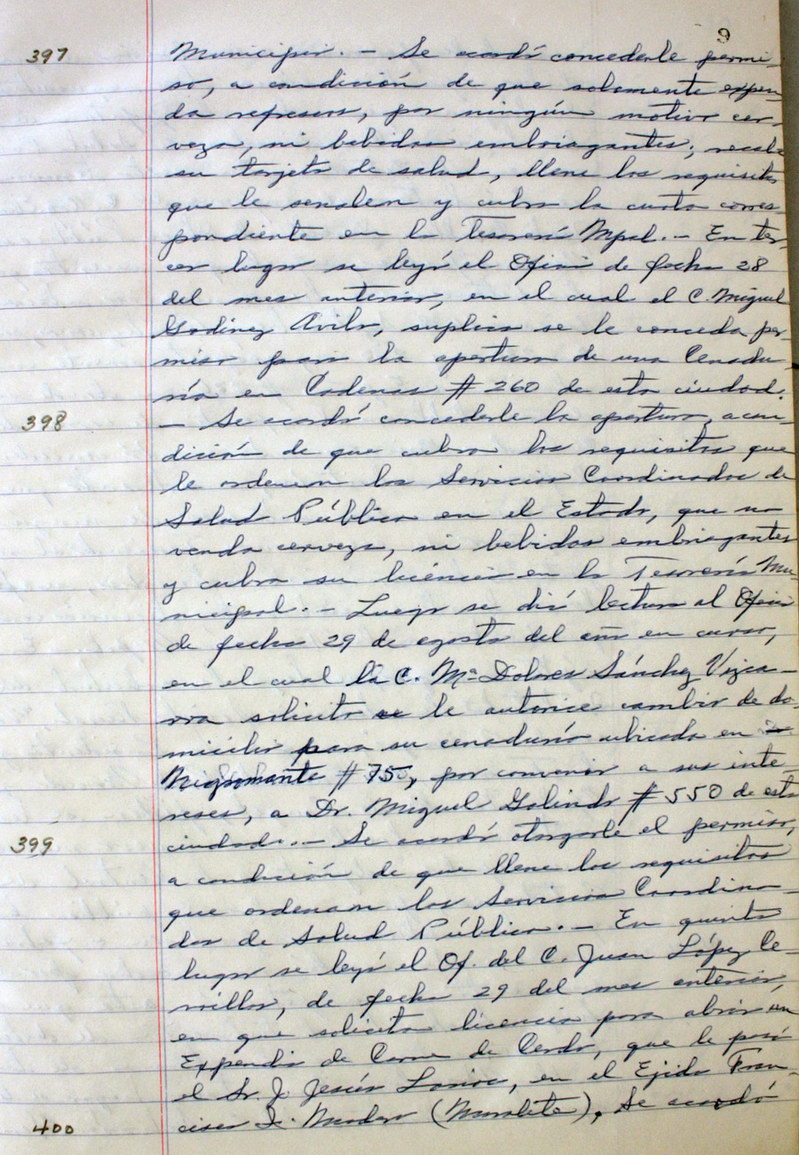 9
397 Municipio. - Se acordó concederle permi-
so, a condición de que solamente expen-
da refrescos, por ningún motivo cer-
veza, ni bebidas embriagantes; recabe
su tarjeta de salud, llene los requisitos
que le señalen y cubra la cuota corres-
pondiente en la Tesorería Mpal. - En ter-
cer lugar se leyó el Oficio de fecha 28
del mes anterior, en el cual el C. Miguel
Godínez Avila, suplica se le conceda per-
miso para la apertura de una Cenadu-
ría en Cadenas # 260 de esta ciudad.
398 - Se acordó concederle la apertura, a con-
dición de que cubra los requisitos que
le ordenen los Servicios Coordinados de
Salud Pública en el Estado, que no
venda cerveza, ni bebidas embriagantes
y cubra su licencia en la Tesorería Mu-
nicipal. - Luego se dió lectura al Oficio
de fecha 29 de agosto del año en curso,
en el cual la C. Ma. Dolores Sánchez Vizca-
rra solicita se le autorice cambio de do-
micilio para su cenaduría ubicada en
Nigromante # 75, por convenir a sus inte-
reses, a Dr. Miguel Galindo # 550 de esta
399 ciudad. - Se acordó otorgarle el permiso,
a condición de que llene los requisitos
que ordenan los Servicios Coordina-
dos de Salud Pública. - En quinto
lugar se leyó el Of. del C. Juan López Ce-
rrillos, de fecha 29 del mes anterior,
en que solicita licencia para abrir un
Expendio de Carne de Cerdo, que le pasó
el Sr. J. Jesús Larios, en el Ejido Fran-
400 cisco I. Madero (Muralete), Se acordó